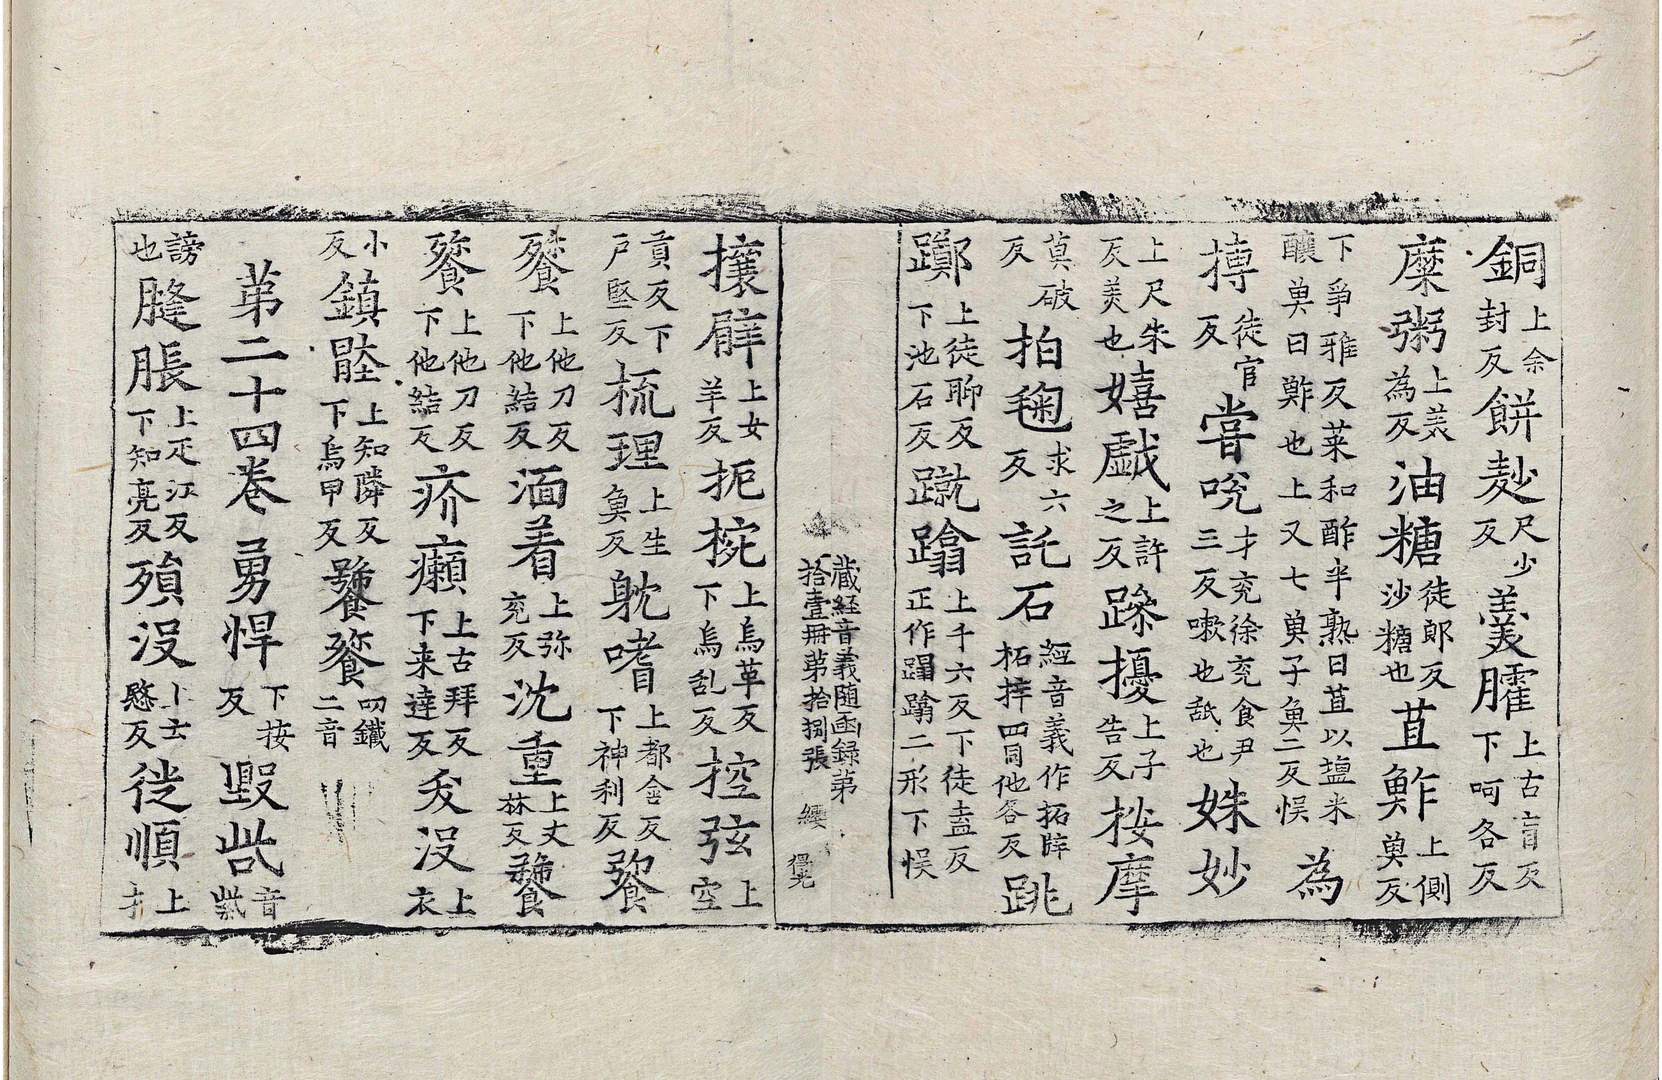 銅上余封反餅麨尺少反羹臛上古盲反下呵各反
糜粥上羙為反油糖徒郎反沙糖也苴鮓上側奠反
下爭雅反莱和酢半熟曰苴以塩米釀奠曰鮓也上又七奠子奠二反悮為
摶徒官反甞吮才兖徐兖食尹三反嗽也舐也姝妙
上尺朱反羙也嬉戱上許之反躁擾上子告反按摩
莫破反拍毱求六反託石經音義作拓磔柘擇四同他各反跳
躑上徒聊反下池石反蹴蹹上千六反下徒盍反正作蹋蹹二形下悮
藏経音義随函録第拾壹冊第拾捌張 纓
攘臂上女羊反扼椀上烏革反下烏乱反控弦上空
貢反下戶堅反梳理上生奠反躭嗜上都含反下神利反
餮上他刀反下他結反湎着上弥兖反沈重上丈林反饕
餮上他刀反下他結反疥癩上古拜反下来達反夌没上衣
小反鎮壓上知隣反下烏甲反饕餮叨鐵二音
苐二十四巻勇悍下按反毀呰音紫
謗也膖脹上疋江反下知亮反殞没上士愍反從順上才